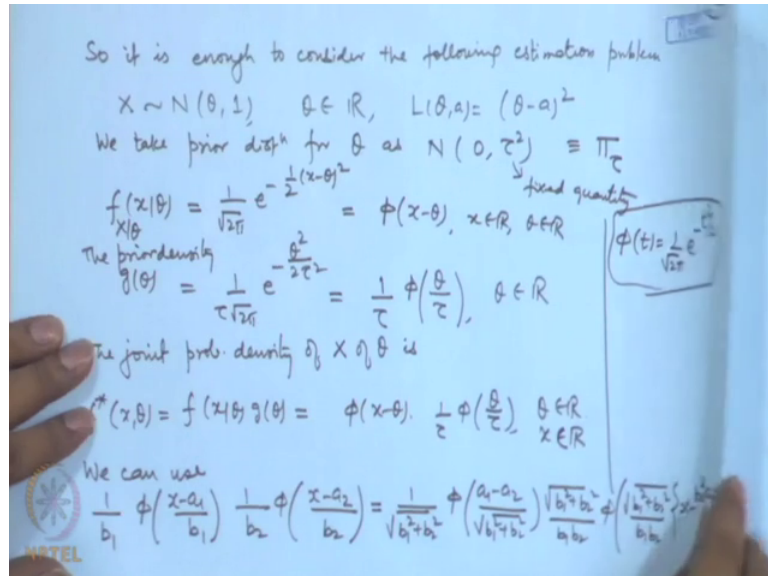 So it is enough to consider the following estimation problem
X ~ N(θ,1), θ∈ℝ, L(θ,a) = (θ-a)²
We take prior distⁿ for θ as N(0, τ²) ≡ Π_τ
fixed quantity
f_{X|θ}(x|θ) = 1/√2π e^{-1/2(x-θ)²} = φ(x-θ), x∈ℝ, θ∈ℝ
φ(t) = 1/√2π e^{-t²/2}
The prior density
g(θ) = 1/(τ√2π) e^{-θ²/2τ²} = 1/τ φ(θ/τ), θ∈ℝ
The joint prob. density of X & θ is
*(x,θ) = f(x|θ) g(θ) = φ(x-θ). 1/τ φ(θ/τ), θ∈ℝ
x∈ℝ
We can use
1/b₁ φ((x-a₁)/b₁) 1/b₂ φ((x-a₂)/b₂) = 1/√(b₁²+b₂²) φ((a₁-a₂)/√(b₁²+b₂²)) √(b₁²+b₂²)/(b₁b₂) φ(√(b₁²+b₂²)/(b₁b₂) {x-
NPTEL